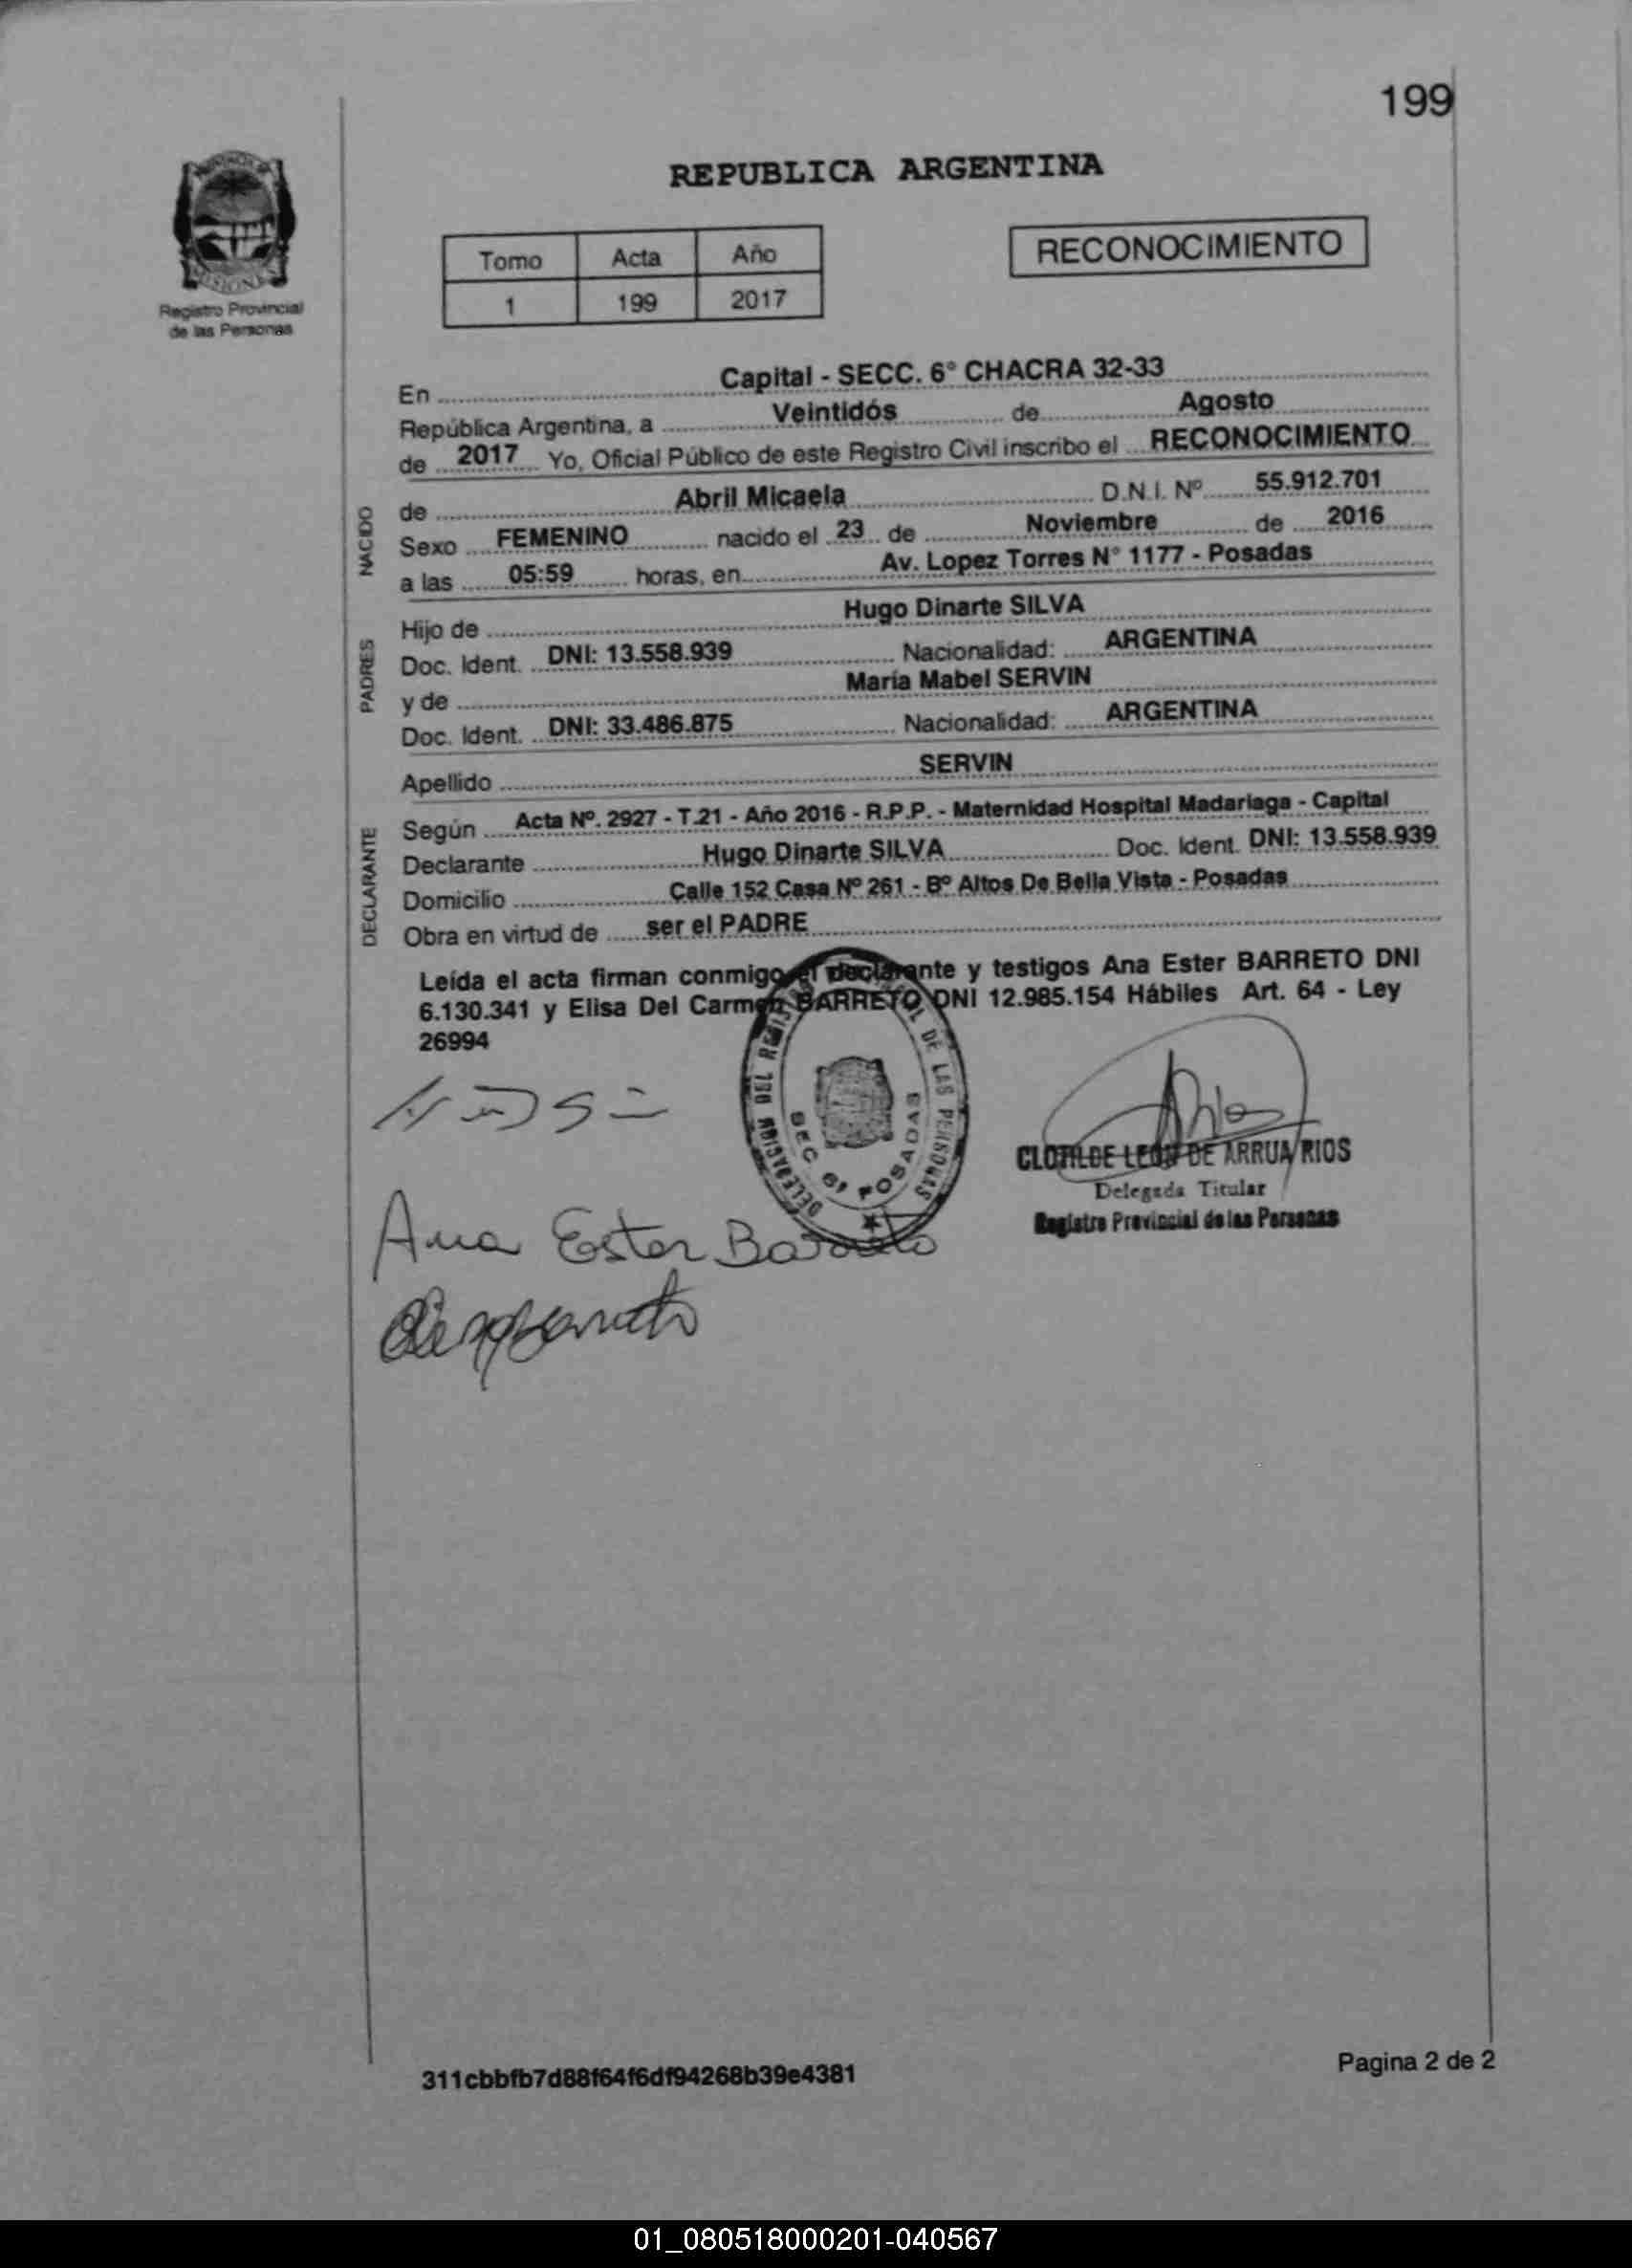 199
REPUBLICA ARGENTINA
Registro Provincial
de las Personas
Tomo Acta Año
1 199 2017
RECONOCIMIENTO
En Capital - SECC. 6° CHACRA 32-33
República Argentina, a Veintidós de Agosto
de 2017 Yo, Oficial Público de este Registro Civil inscribo el RECONOCIMIENTO
NACIDO
de Abril Micaela D.N.I. Nº 55.912.701
Sexo FEMENINO nacido el 23 de Noviembre de 2016
a las 05:59 horas, en Av. Lopez Torres N° 1177 - Posadas
PADRES
Hijo de Hugo Dinarte SILVA
Doc. Ident. DNI: 13.558.939 Nacionalidad: ARGENTINA
y de María Mabel SERVIN
Doc. Ident. DNI: 33.486.875 Nacionalidad: ARGENTINA
Apellido SERVIN
DECLARANTE
Según Acta Nº. 2927 - T.21 - Año 2016 - R.P.P. - Maternidad Hospital Madariaga - Capital
Declarante Hugo Dinarte SILVA Doc. Ident. DNI: 13.558.939
Domicilio Calle 152 Casa Nº 261 - Bº Altos De Bella Vista - Posadas
Obra en virtud de ser el PADRE
Leída el acta firman conmigo el declarante y testigos Ana Ester BARRETO DNI
6.130.341 y Elisa Del Carmen BARRETO DNI 12.985.154 Hábiles Art. 64 - Ley
26994
DELEGACION DEL REGISTRO PROVINCIAL DE LAS PERSONAS
SEC. 6ª POSADAS
CLOTILDE LEON DE ARRUA RIOS
Delegada Titular
Registro Provincial de las Personas
Ana Ester Barreto
311cbbfb7d88f64f6df94268b39e4381
Pagina 2 de 2
01_080518000201-040567